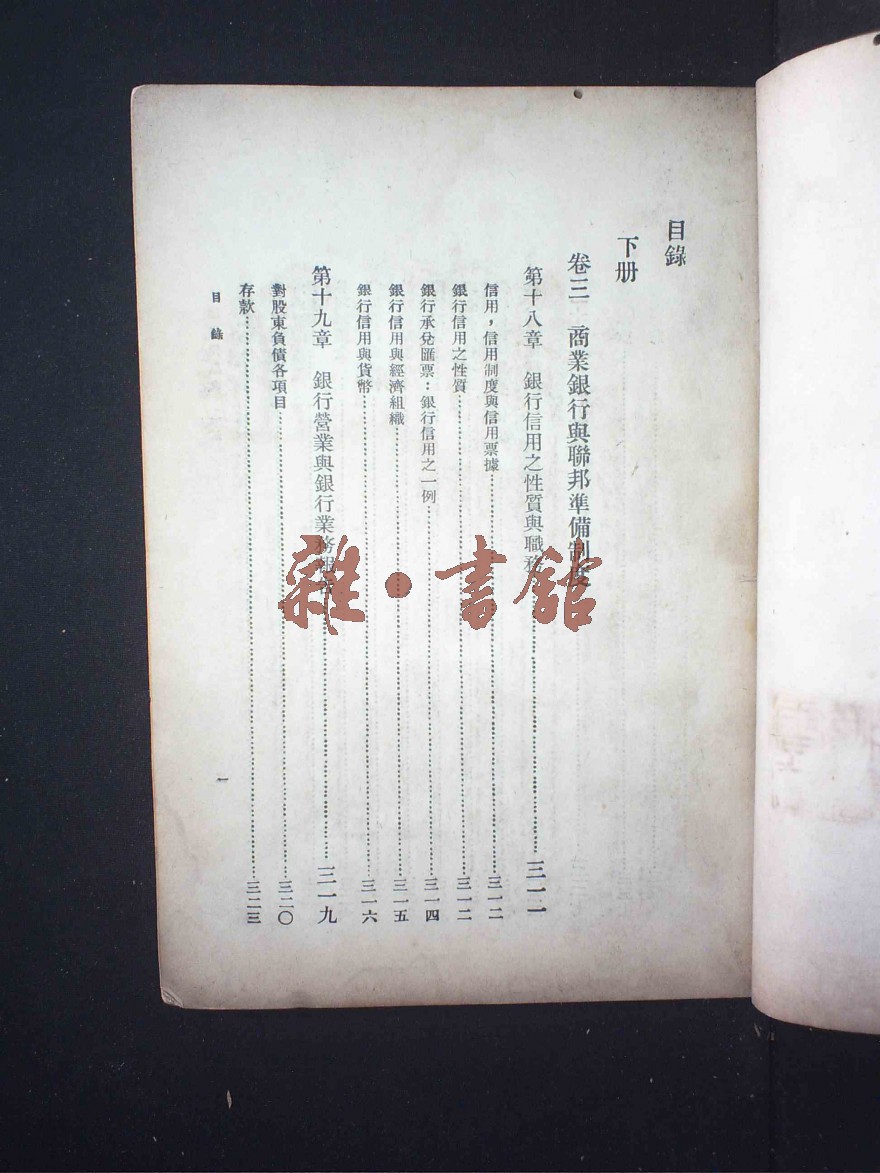 目錄
下册
卷三 商業銀行與聯邦準備制度
第十八章 銀行信用之性質與職務……三一一
信用，信用制度與信用票據……三一二
銀行信用之性質……三一二
銀行承兌匯票：銀行信用之一例……三一四
銀行信用與經濟組織……三一五
銀行信用與貨幣……三一六
第十九章 銀行營業與銀行業務報告……三一九
對股東負債各項目……三二〇
存款……三二三
目錄
一
雜·書館